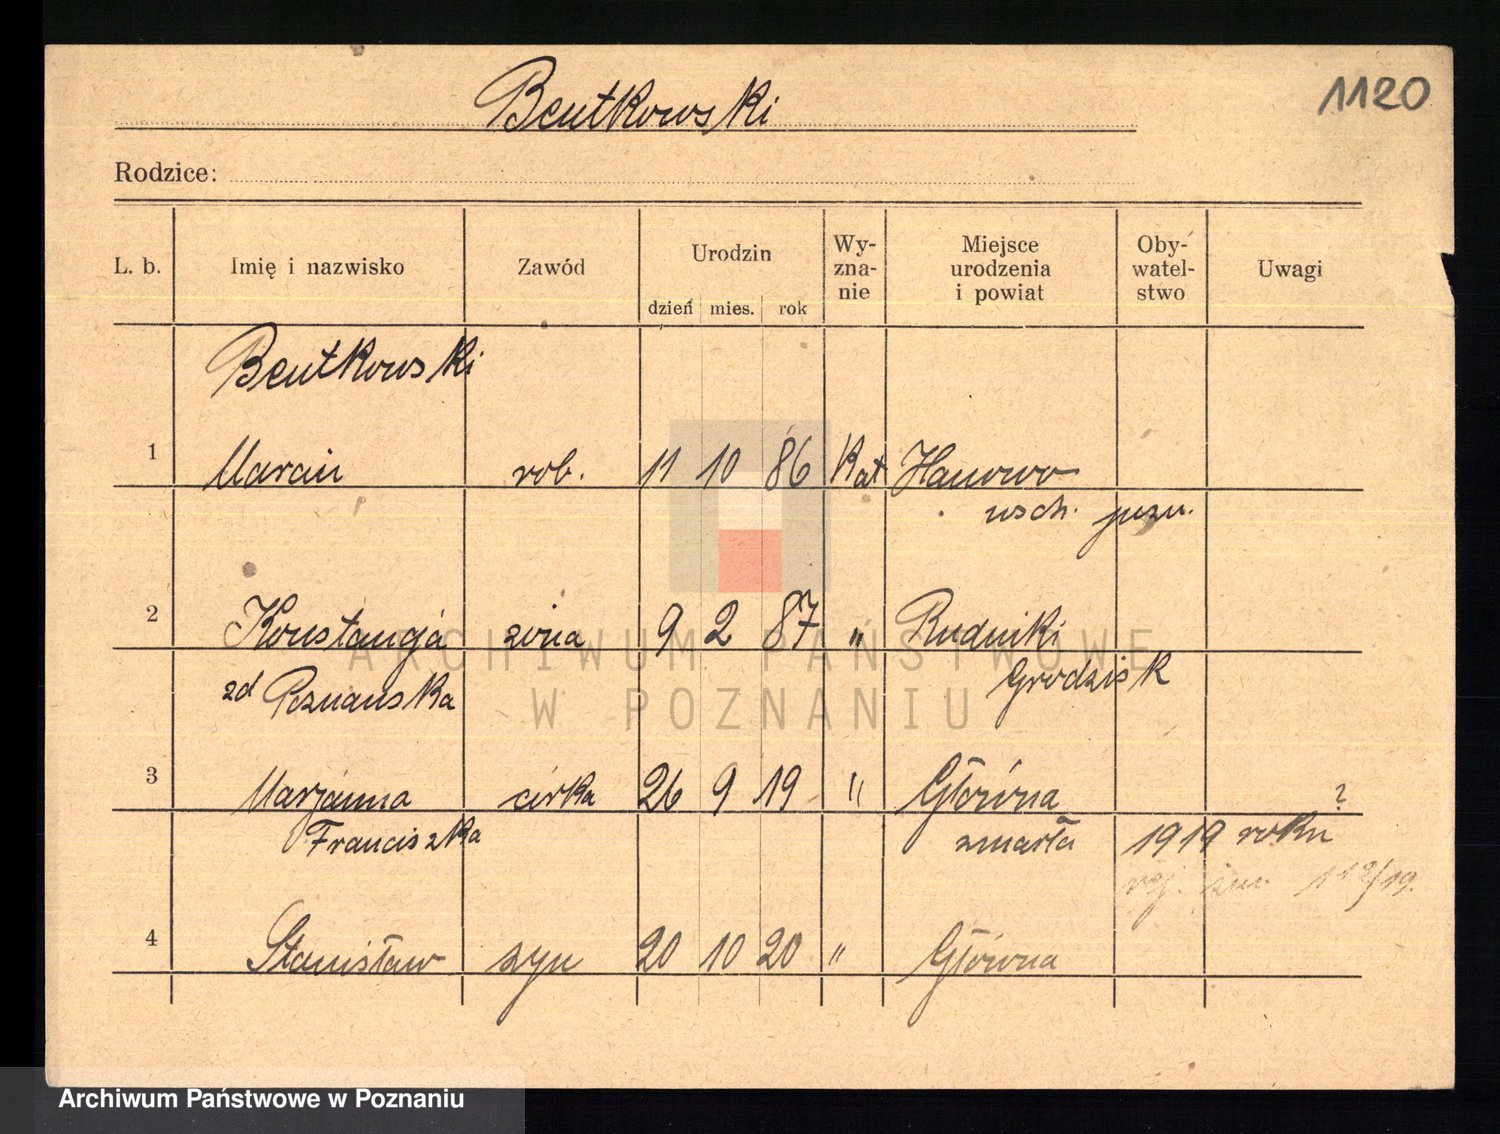 1120
Bentkowski
Rodzice:
L. b. Imię i nazwisko Zawód Urodzin dzień mies. rok Wy-zna-nie Miejsce urodzenia i powiat Oby-watel-stwo Uwagi
Bentkowski
1 Marcin rob. 11 10 86 Kat
wsch.
2 Konstancja żona 9 2 87 " Rudniki
zd Poznanska Grodzisk
3 Marjanna córka 26 9 19 " Główna ?
Franciszka zmarła 1919 roku
4 Stanisław syn 20 10 20 " Główna
ARCHIWUM PAŃSTWOWE
W POZNANIU
Archiwum Państwowe w Poznaniu